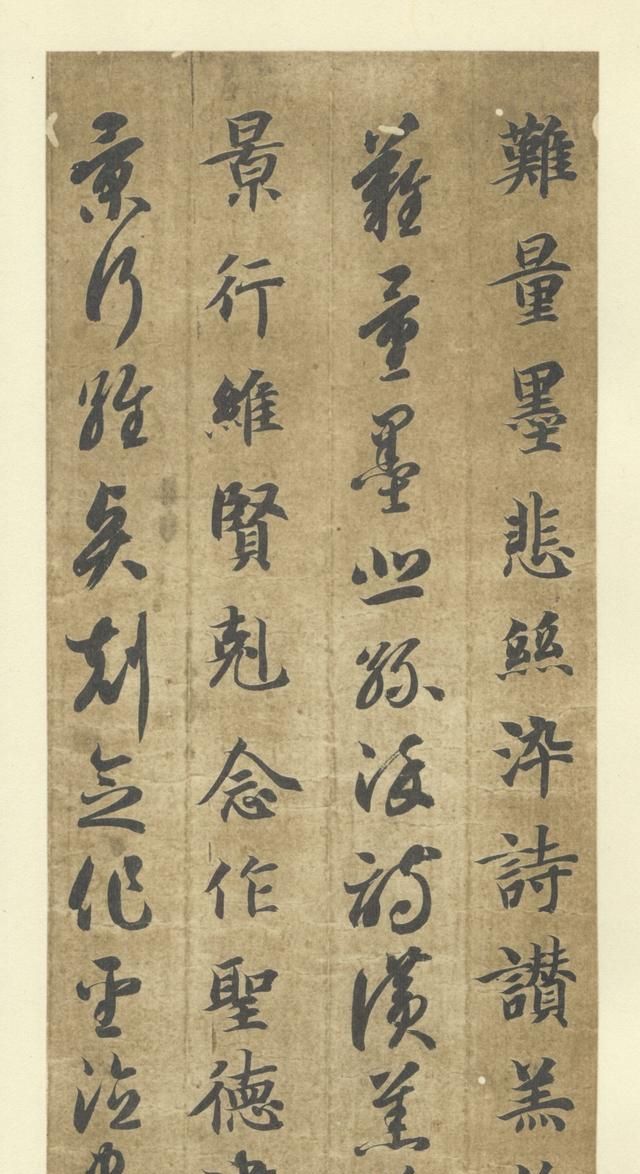 難量墨悲絲染詩讚羔
難量墨悲絲染詩讚羔
景行維賢剋念作聖德
景行維賢剋念作聖德